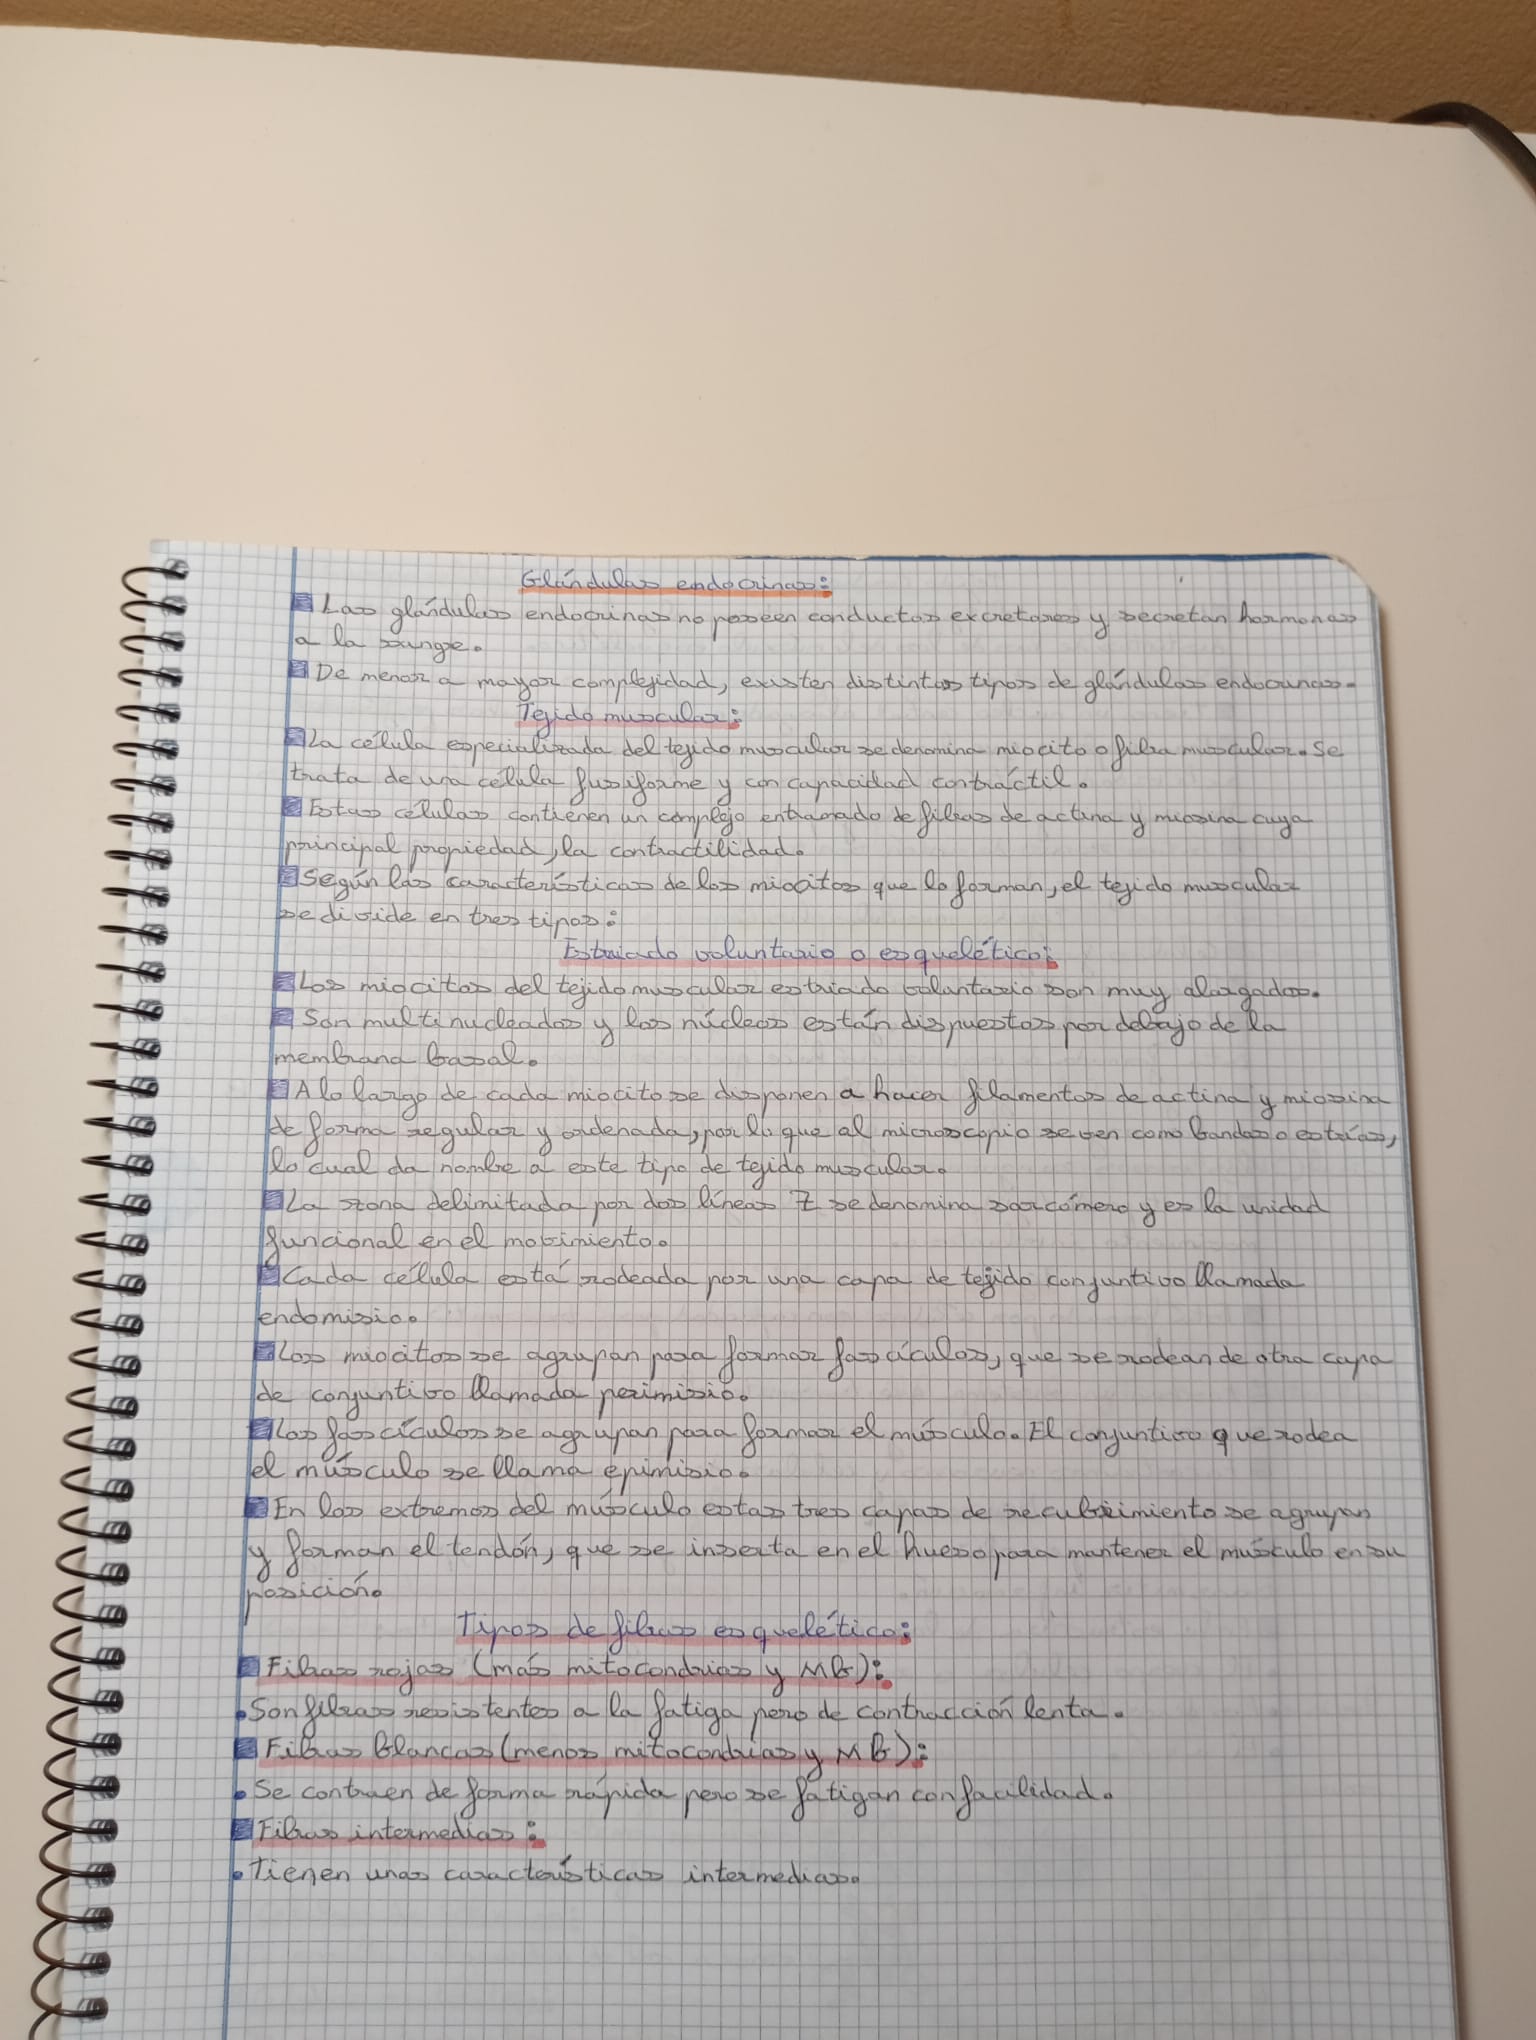 Glándulas endocrinas:
Las glándulas endocrinas no poseen conductos excretores y secretan hormonas
a la sangre.
De menor a mayor complejidad, existen distintos tipos de glándulas endocrinas.
Tejido muscular:
La célula especializada del tejido muscular se denomina miocito o fibra muscular. Se
trata de una célula fusiforme y con capacidad contráctil.
Estas células contienen un complejo entramado de fibras de actina y miosina cuya
principal propiedad, la contractilidad.
Según las características de los miocitos que lo forman, el tejido muscular
se divide en tres tipos:
Estriado voluntario o esquelético:
Los miocitos del tejido muscular estriado voluntario son muy alargados.
Son multinucleados y los núcleos están dispuestos por debajo de la
membrana basal.
A lo largo de cada miocito se disponen a hacer filamentos de actina y miosina
de forma regular y ordenada, por lo que al microscopio se ven como bandas o estrías,
lo cual da nombre a este tipo de tejido muscular.
La zona delimitada por dos líneas Z se denomina sarcómero y es la unidad
funcional en el movimiento.
Cada célula está rodeada por una capa de tejido conjuntivo llamada
endomisio.
Los miocitos se agrupan para formar fascículos, que se rodean de otra capa
de conjuntivo llamada perimisio.
Los fascículos se agrupan para formar el músculo. El conjuntivo que rodea
el músculo se llama epimisio.
En los extremos del músculo estas tres capas de recubrimiento se agrupan
y forman el tendón, que se inserta en el hueso para mantener el músculo en su
posición.
Tipos de fibras esquelético:
Fibras rojas (más mitocondrias y MB):
• Son fibras resistentes a la fatiga pero de contracción lenta.
Fibras blancas (menos mitocondrias y MB):
• Se contraen de forma rápida pero se fatigan con facilidad.
Fibras intermedias:
• Tienen unas características intermedias.